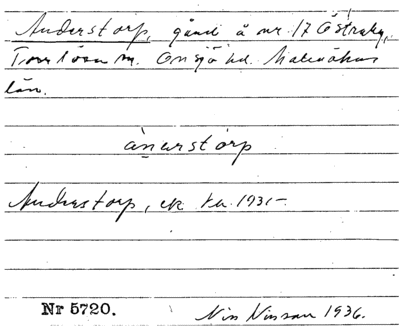 Anderstorp, gård å nr. 17 Östraby,
Torrlösa sn. Onsjö hd. Malmöhus
län.
ànarstórp
Anderstorp, ek. ka. 1931-
Nr 5720.
Nils Nilsson 1936.